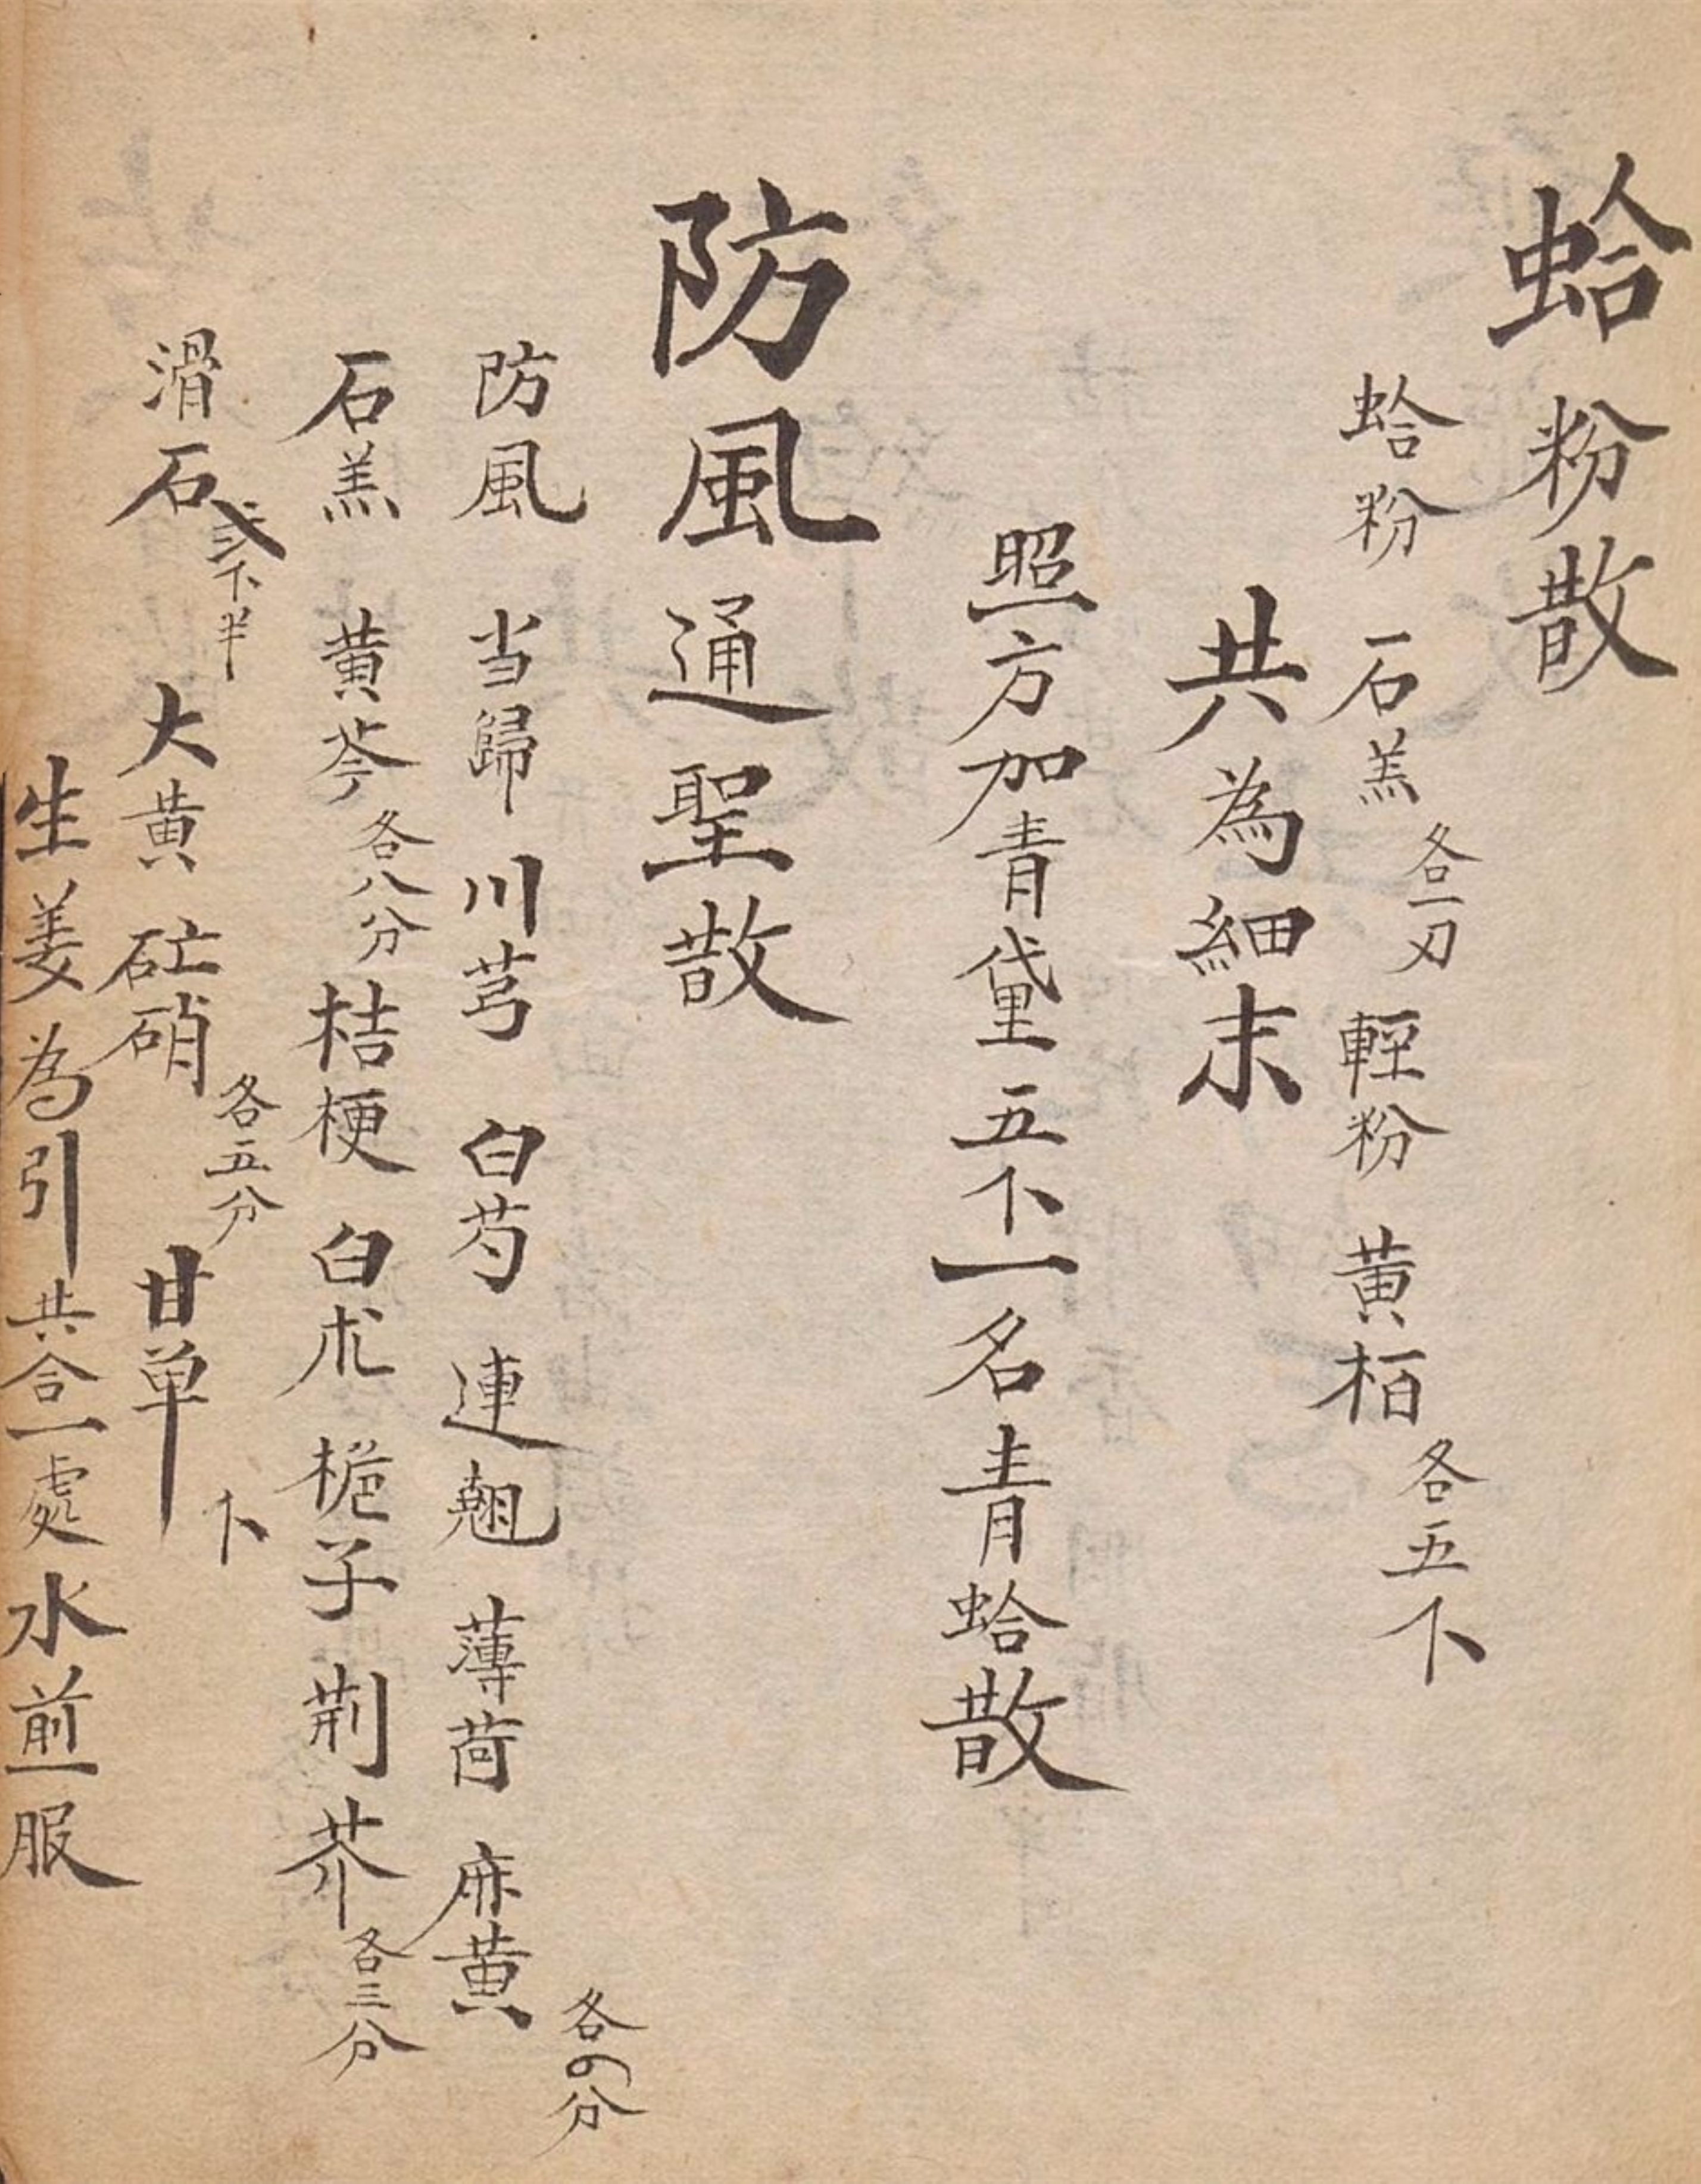 蛤粉散
蛤粉 石羔 各一刃 輕粉 黄栢 各五下
共為細末
照方加青黛五下一名青蛤散
防風通聖散
防風 当歸 川芎 白芍 連翹 薄荷 麻黄 各四分
石羔 黄芩 各八分 桔梗 白朮 梔子 荆芥 各三分
滑石 弍下半 大黄 硭硝 各五分 甘单 下
生姜為引共合一處水煎服